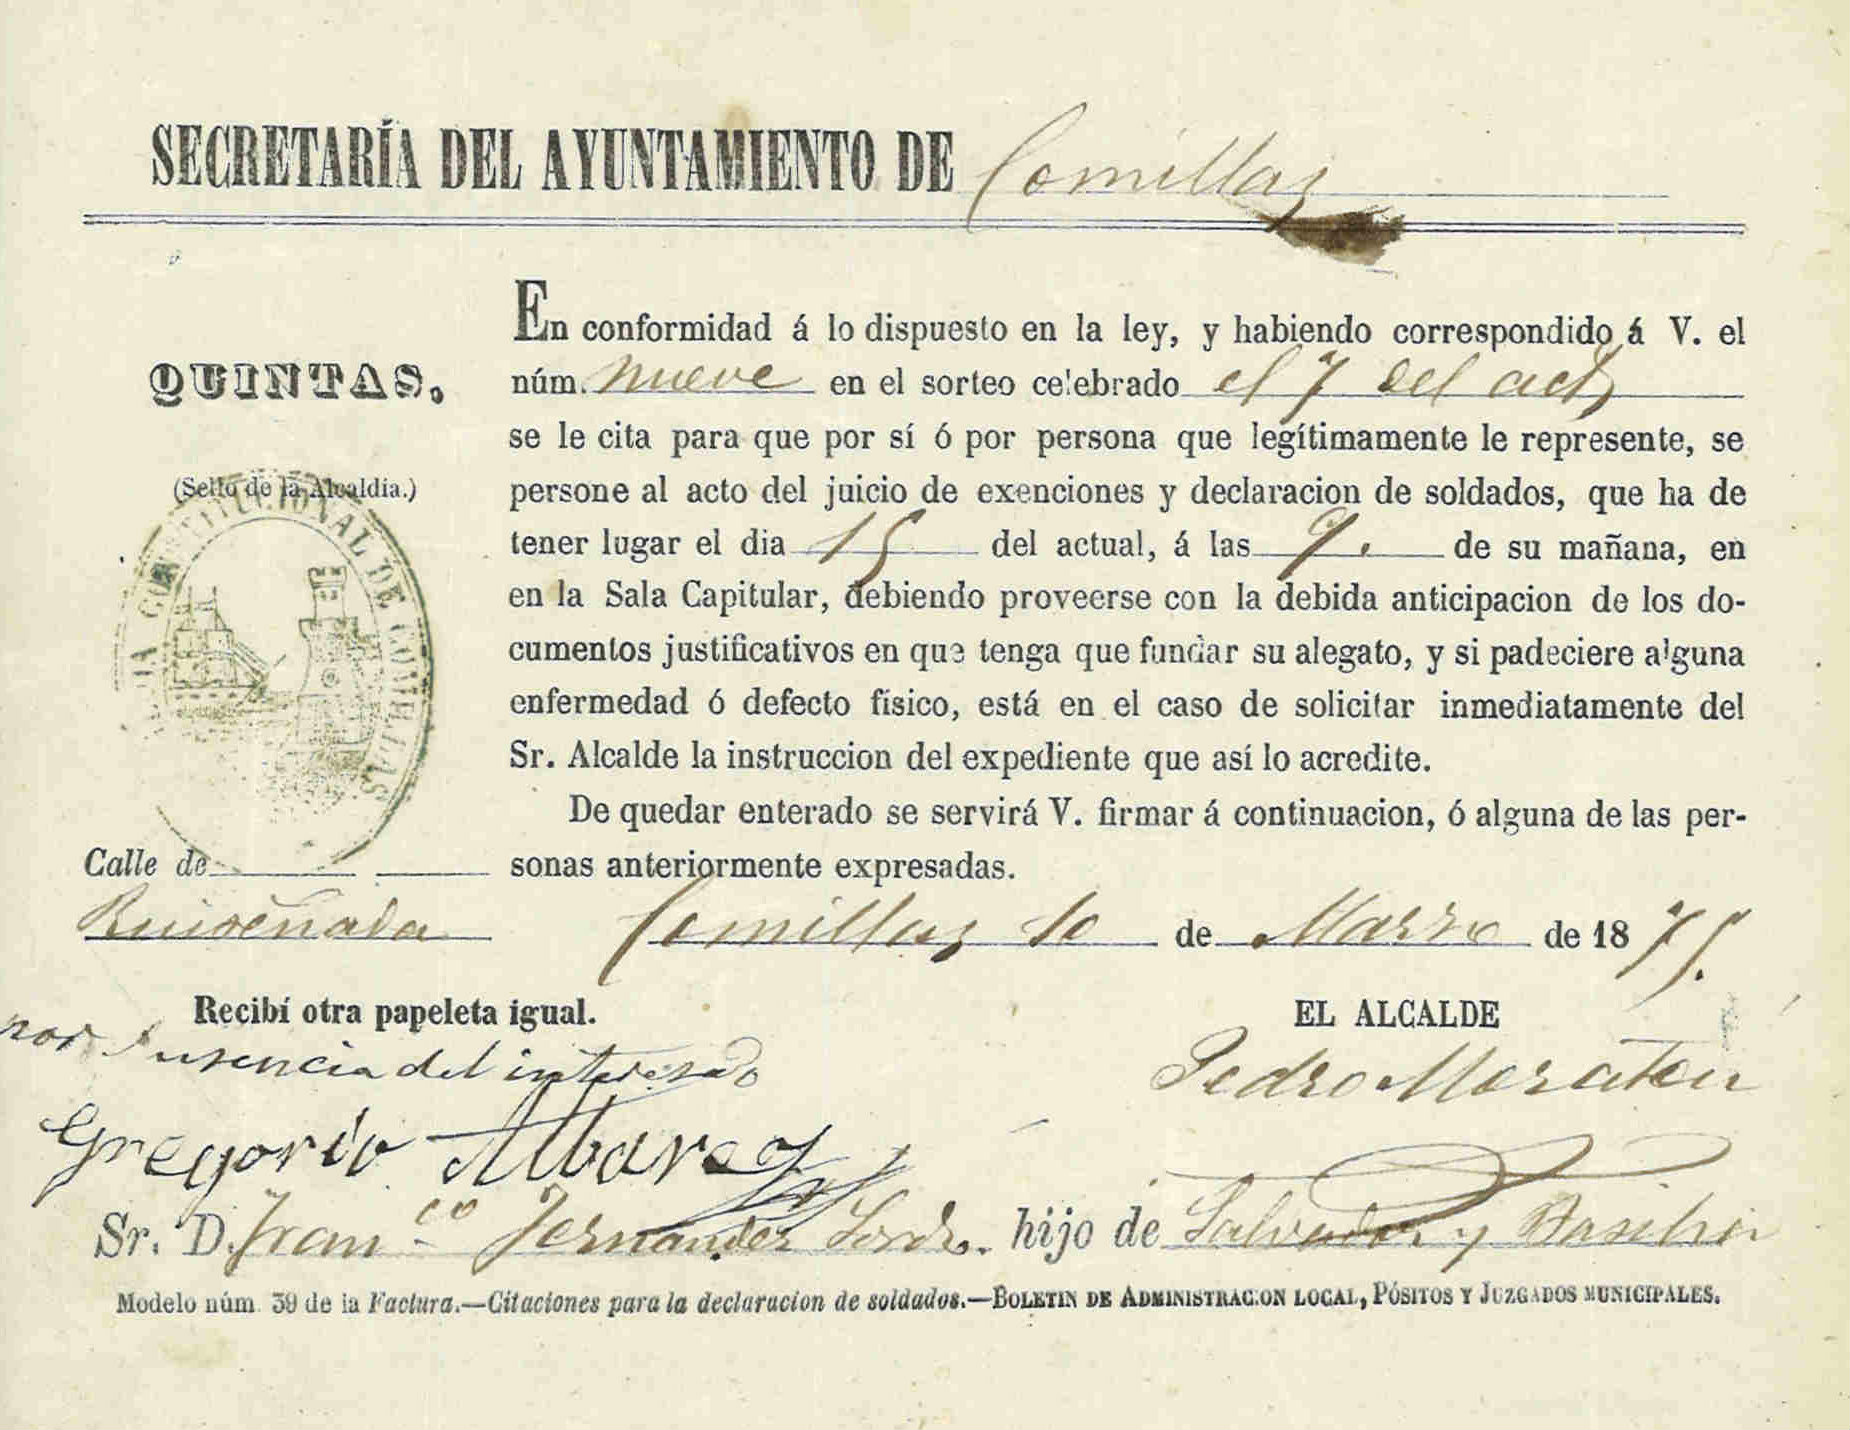 SECRETARÍA DEL AYUNTAMIENTO DE Comillas
QUINTAS.
(Sello de la Alcaldía.)
CONSTITUCIONAL DE COMILLAS
En conformidad á lo dispuesto en la ley, y habiendo correspondido á V. el
núm. nueve en el sorteo celebrado el 7 del act
se le cita para que por sí ó por persona que legítimamente le represente, se
persone al acto del juicio de exenciones y declaracion de soldados, que ha de
tener lugar el dia 15 del actual, á las 9. de su mañana, en
en la Sala Capitular, debiendo proveerse con la debida anticipacion de los do-
cumentos justificativos en que tenga que fundar su alegato, y si padeciere alguna
enfermedad ó defecto físico, está en el caso de solicitar inmediatamente del
Sr. Alcalde la instruccion del expediente que así lo acredite.
De quedar enterado se servirá V. firmar á continuacion, ó alguna de las per-
sonas anteriormente expresadas.
Calle de
Ruiseñada
Comillas 10 de Marzo de 1875.
Recibí otra papeleta igual.
por Ausencia del interesado
Gregorio Albarez
EL ALCALDE
Pedro
Sr. D. Fran.co Fernandez hijo de Salvador y Basilia
Modelo núm. 39 de la Factura.—Citaciones para la declaracion de soldados.—BOLETIN DE ADMINISTRACION LOCAL, PÓSITOS Y JUZGADOS MUNICIPALES.